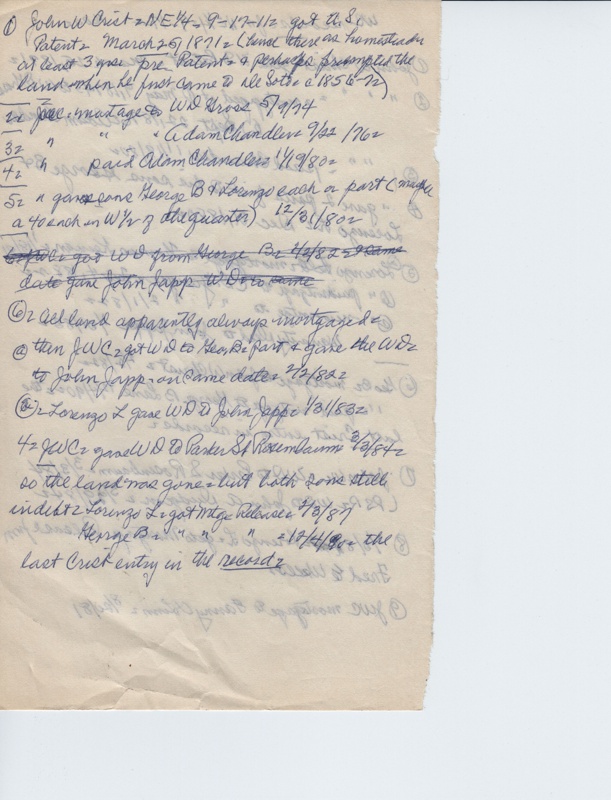 ① John W Crist = NE 1/4 = 9-17-11 = got the
Patent = March 25, 1871 = (lived there as homesteader
at least 3 yrs pre Patent & perhaps preempted the
land when he first came to
2= JWC = mortgage to WD Gross 5/9/74
" " " Adam Chandler = 9/22/76 =
3= " paid Adam Chandler = 1/19/80 =
4=
5= " gave sons George B & Lorenzo each a part (maybe
a 40 each in W 1/2 of the quarter) 12/31/80 =
JWC = got WD from George B = 2/2/82 = & same
date gave John Japp WD to same
⑥ = all land apparently always mortgaged =
ⓐ then JWC = got WD to Geo B = part & gave the WD =
to John Japp = on same date = 2/2/82 =
ⓑ = Lorenzo L gave WD to John Japp = 1/31/83 =
4= JWC = gave WD to Parker S Rosenbaum 3/3/84 =
so the land was gone = but both sons still
in debt = Lorenzo L = got Mtge Release =
George B = " " " = 12/4/90 = the
last Crist entry in the record =
Fred
⑨ JWC mortgage to